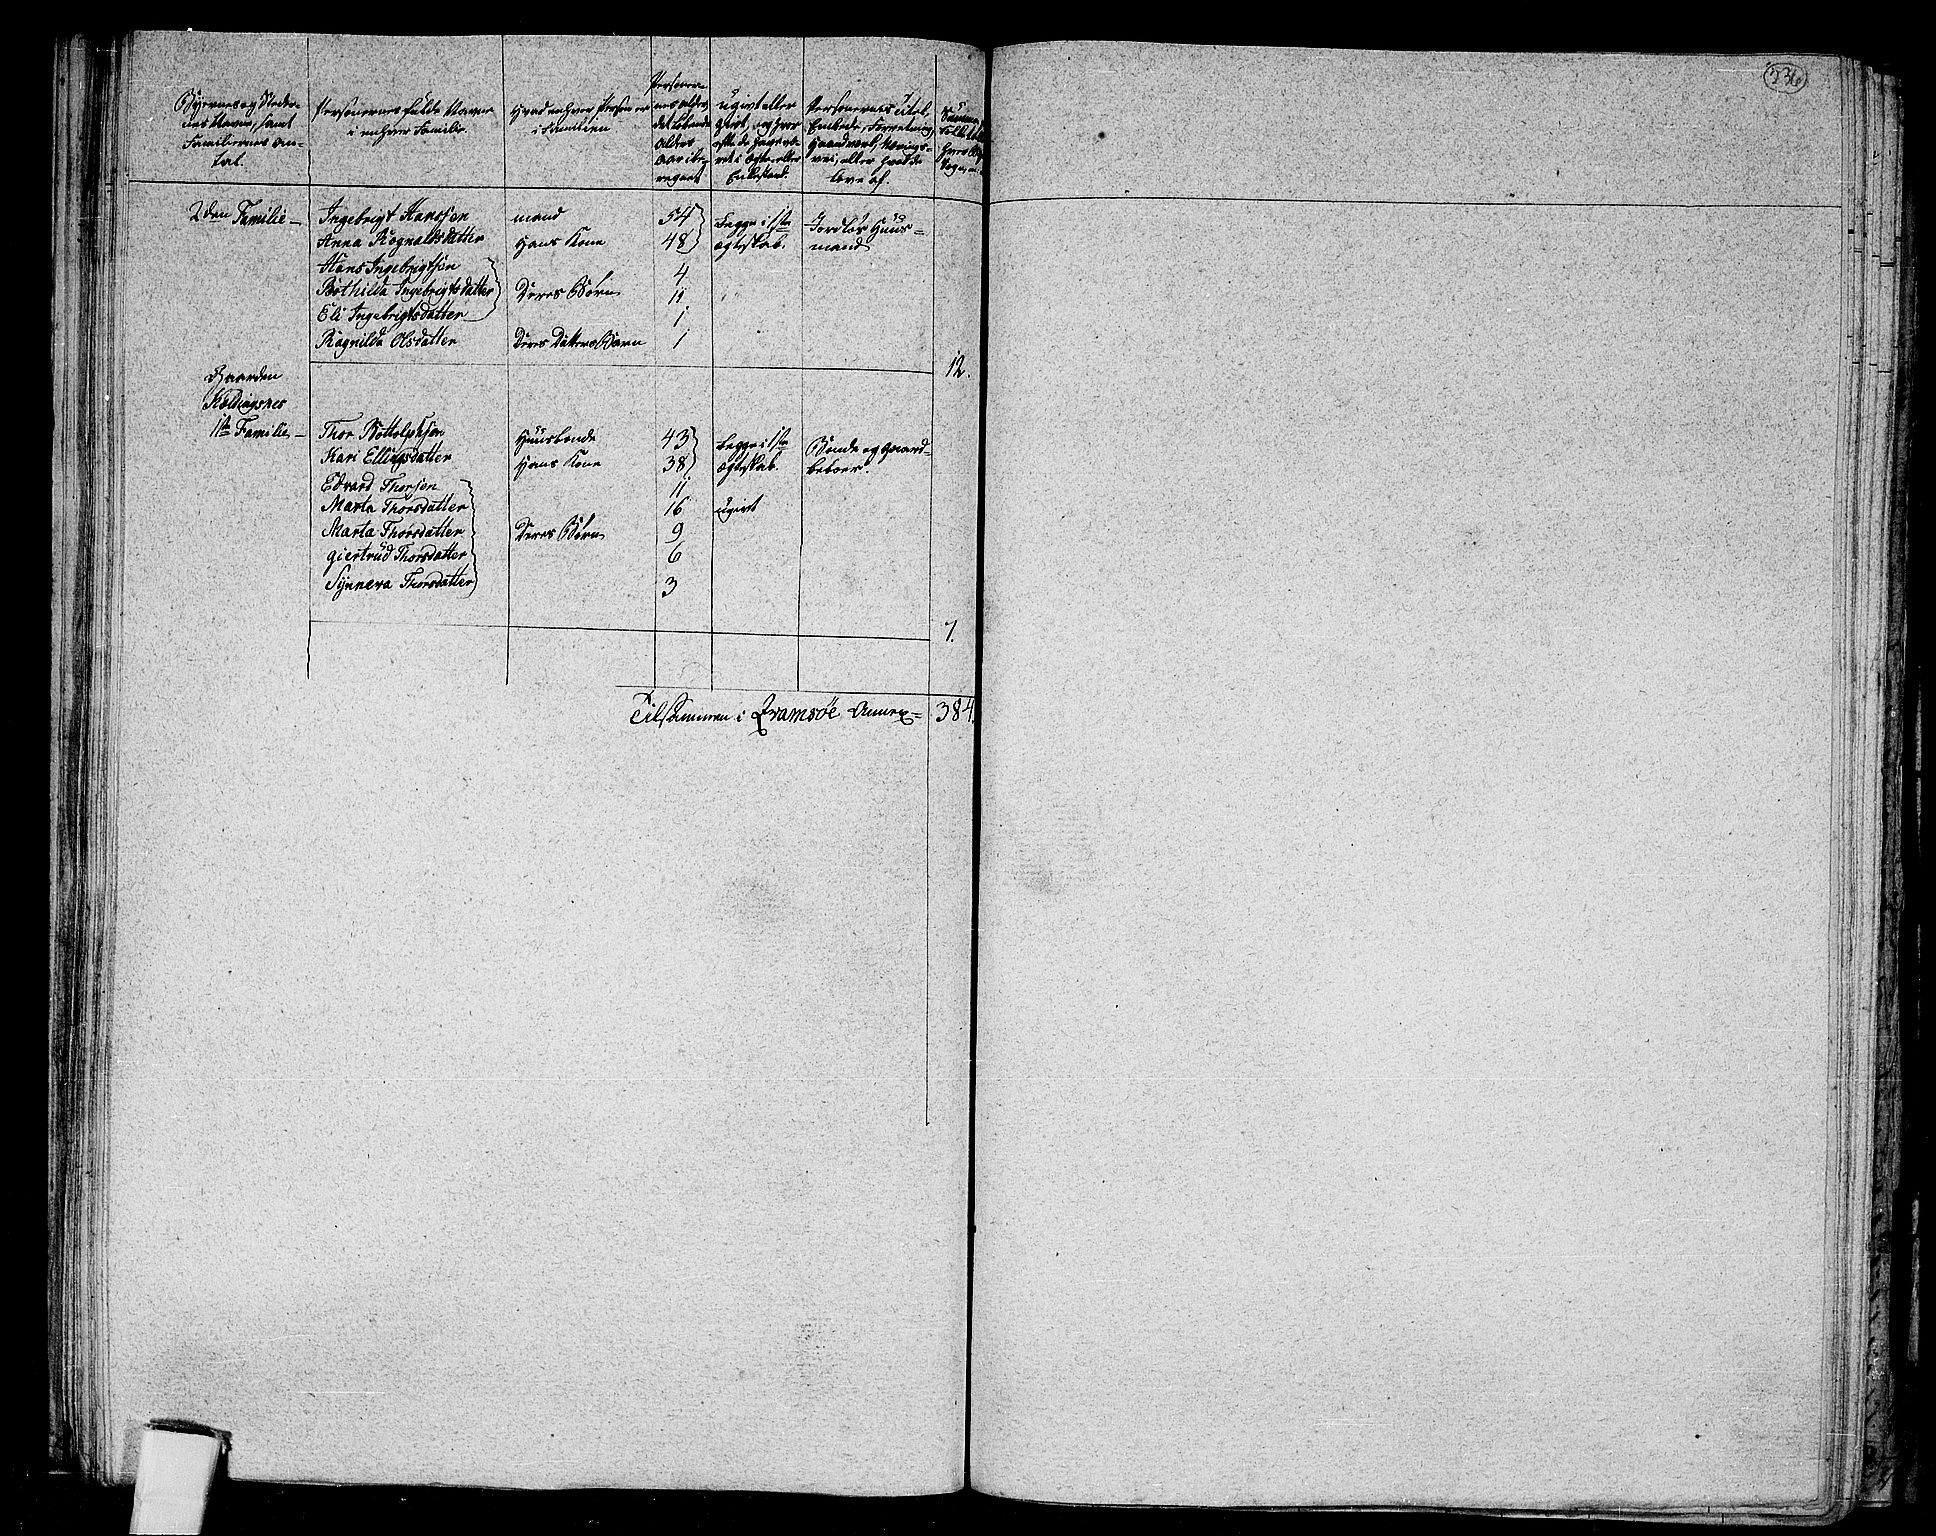 336
Byernes og Steder-
nes Navne, samt
Familiernes An-
tal.
Personernes fulde Navne
i enhver Familie.
Hvad enhver Person er
i Familien
Personer-
nes Alder
det løbende
Alders
Aar ibe-
regnet
Ugivt eller
Givt, og hvor
ofte de have væ-
ret i Ægte- eller
Enkestand.
Personernes Titel,
Embede, Forretning,
Haandværk, Nærings-
vei, eller hvad de
leve af.
Summa
2den Familie - Ingebrigt Hanssen mand 54 begge i 1ste Jordløs Huus=
Anna Rognaldsdatter Hans Kone 48 ægteskab. mand
Hans Ingebrigtsen 4
Bothilda Ingebrigtsdatter Deres Børn 11
Eli Ingebrigtsdatter 1
Ragnilda Olsdatter Deres Datters Barn 1
12.
Gaarden
Koldingsnes
1te Familie - Thor Bottolphsen Huusbonde 43 begge i 1ste Bonde og Gaard-
Kari Ellingsdatter Hans Kone 38 ægteskab. beboer
Edvard Thorsen 11
Marta Thorsdatter 16 ugivt
Marta Thorsdatter Deres Børn 9
Giertrud Thorsdatter 6
Synneva Thorsdatter 3
7.
Tilsammen i Bramsøe Annex= 384.